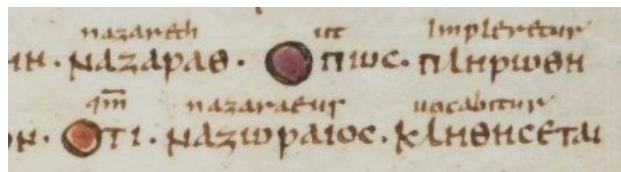 nazareth ut impleretur
ΗΝ · ΝΑΖΑΡΑΘ · ΟΠΩC · ΠΛΗΡΩΘΗ
qm̅ nazaraeus uocabitur
ΟΝ · ΟΤΙ · ΝΑΖΩΡΑΙΟC · ΚΛΗΘΗCΕΤΑΙ